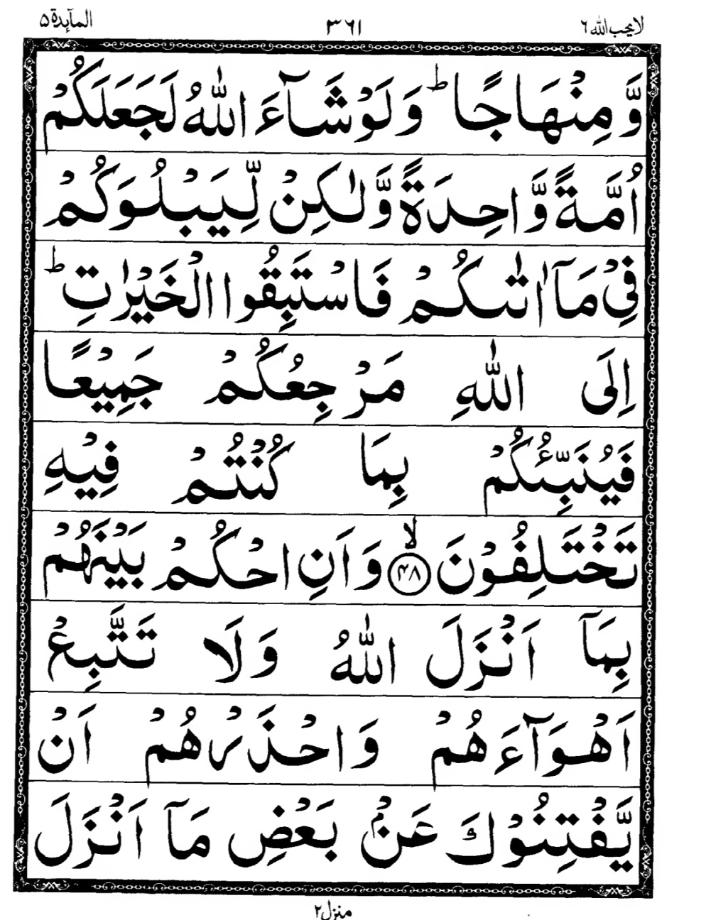 المآئدة ۵
۳۶۱
لا يحب الله ۶
وَّمِنْهَاجًا ؕ وَلَوْ شَآءَ اللّٰهُ لَجَعَلَكُمْ
اُمَّةً وَّاحِدَةً وَّلٰكِنْ لِّيَبْلُوَكُمْ
فِيْ مَاۤ اٰتٰىكُمْ فَاسْتَبِقُوا الْخَيْرٰتِ ؕ
اِلَى اللّٰهِ مَرْجِعُكُمْ جَمِيْعًا
فَيُنَبِّئُكُمْ بِمَا كُنْتُمْ فِيْهِ
تَخْتَلِفُوْنَ ۙ﴿۴۸﴾ وَاَنِ احْكُمْ بَيْنَهُمْ
بِمَاۤ اَنْزَلَ اللّٰهُ وَلَا تَتَّبِعْ
اَهْوَآءَهُمْ وَاحْذَرْهُمْ اَنْ
يَّفْتِنُوْكَ عَنْۢ بَعْضِ مَاۤ اَنْزَلَ
منزل ۲